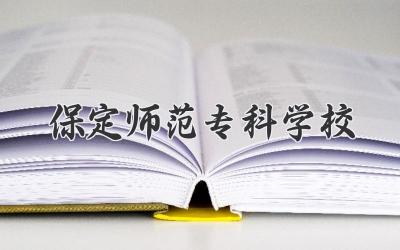 保定师范专科学校